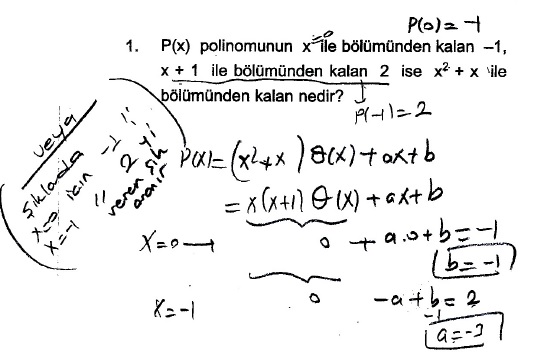 P(0) = -1
1. P(x) polinomunun x ile bölümünden kalan –1,
=0
x + 1 ile bölümünden kalan 2 ise x² + x ile
bölümünden kalan nedir?
P(-1) = 2
veya
Şıklarda
x=0 için -1 i
x=-1 " 2 yi
veren şık
aranır
P(x) = (x²+x) Q(x) + ax+b
= x(x+1) Q(x) + ax+b
x=0 → 0 + a.0+b = -1
b = -1
x=-1 0 -a+b = 2
-1
a = -3